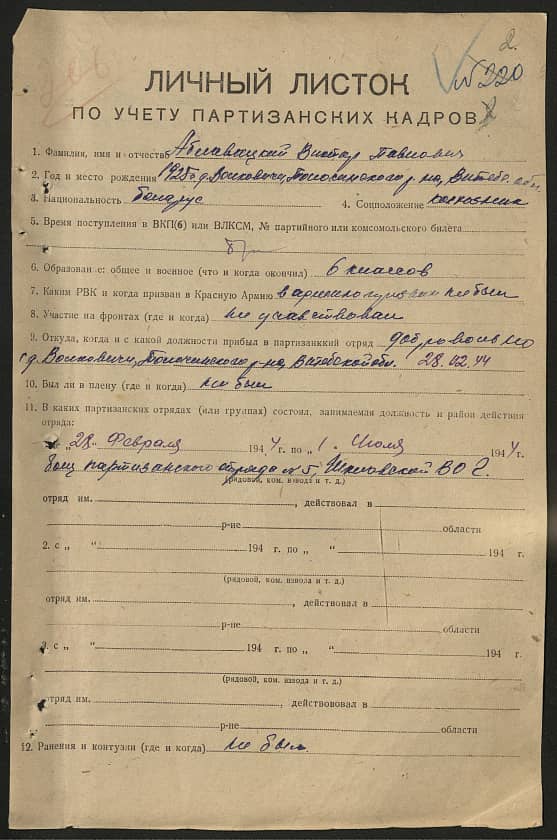 2.
№ 220
ЛИЧНЫЙ ЛИСТОК
ПО УЧЕТУ ПАРТИЗАНСКИХ КАДРОВ
1. Фамилия, имя и отчество Аблавацкий Виктор Павлович
2. Год и место рождения 1925 г. д. Волковичи, Толочинского р-на, Витебс. обл.
3. Национальность белорус 4. Соцположение колхозник
5. Время поступления в ВКП(б) или ВЛКСМ, № партийного или комсомольского билета
6. Образование: общее и военное (что и когда окончил) 6 классов
7. Каким РВК и когда призван в Красную Армию в армию не был
8. Участие на фронтах (где и когда) не участвовал
9. Откуда, когда и с какой должности прибыл в партизанкий отряд добровольно
с д. Волковичи, Толочинского р-на, Витебской обл. 28.02.44
10. Был ли в плену (где и когда) не был
11. В каких партизанских отрядах (или группах) состоял, занимаемая должность и район действия
отряда:
„28„ Февраля 1944 г. по „1„ Июля 1944 г.
боец партизанского отряда № 5, Шкловской ВОГ.
(рядовой, ком. взвода и т. д.)
отряд им. , действовал в
р-не области
2. с „ “ 194 г. по „ “ 194 г.
(рядовой, ком. взвода и т. д.)
отряд им. , действовал в
р-не области
3. с „ “ 194 г. по „ “ 194 г.
(рядовой, ком. взвода и т. д.)
отряд им. , действововал в
р-не области
12. Ранения и контузли (где и когда) не был.